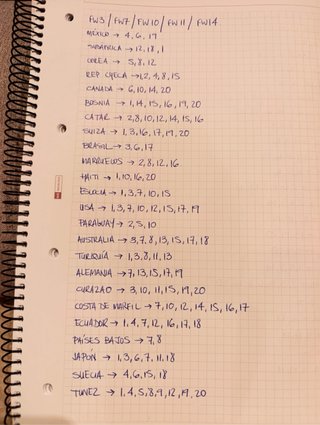 FW3 / FW7 / FW10 / FW11 / FW14
MÉXICO → 4, 6, 19
SUDÁFRICA → 12, 18, 1
COREA → 5, 8, 12
REP CHECA → 1, 2, 4, 8, 15
CANADA → 6, 10, 14, 20
BOSNIA → 1, 14, 15, 16, 19, 20
CATAR → 2, 8, 10, 12, 14, 15, 16
SUIZA → 1, 3, 16, 17, 19, 20
BRASIL → 3, 6, 17
MARRUECOS → 2, 8, 12, 16
HAITI → 1, 10, 16, 20
ESCOCIA → 1, 3, 7, 10, 15
USA → 1, 3, 7, 10, 12, 15, 17, 19
PARAGUAY → 2, 5, 10
AUSTRALIA → 5, 7, 8, 13, 15, 17, 18
TURQUÍA → 1, 3, 8, 11, 13
ALEMANIA → 7, 13, 15, 17, 19
CURAZAO → 3, 10, 11, 15, 19, 20
COSTA DE MARFIL → 7, 10, 12, 14, 15, 16, 17
ECUADOR → 1, 4, 7, 12, 16, 17, 18
PAÍSES BAJOS → 7, 8
JAPÓN → 1, 3, 6, 7, 11, 18
SUECIA → 4, 6, 15, 18
TUNEZ → 1, 4, 5, 8, 9, 12, 19, 20